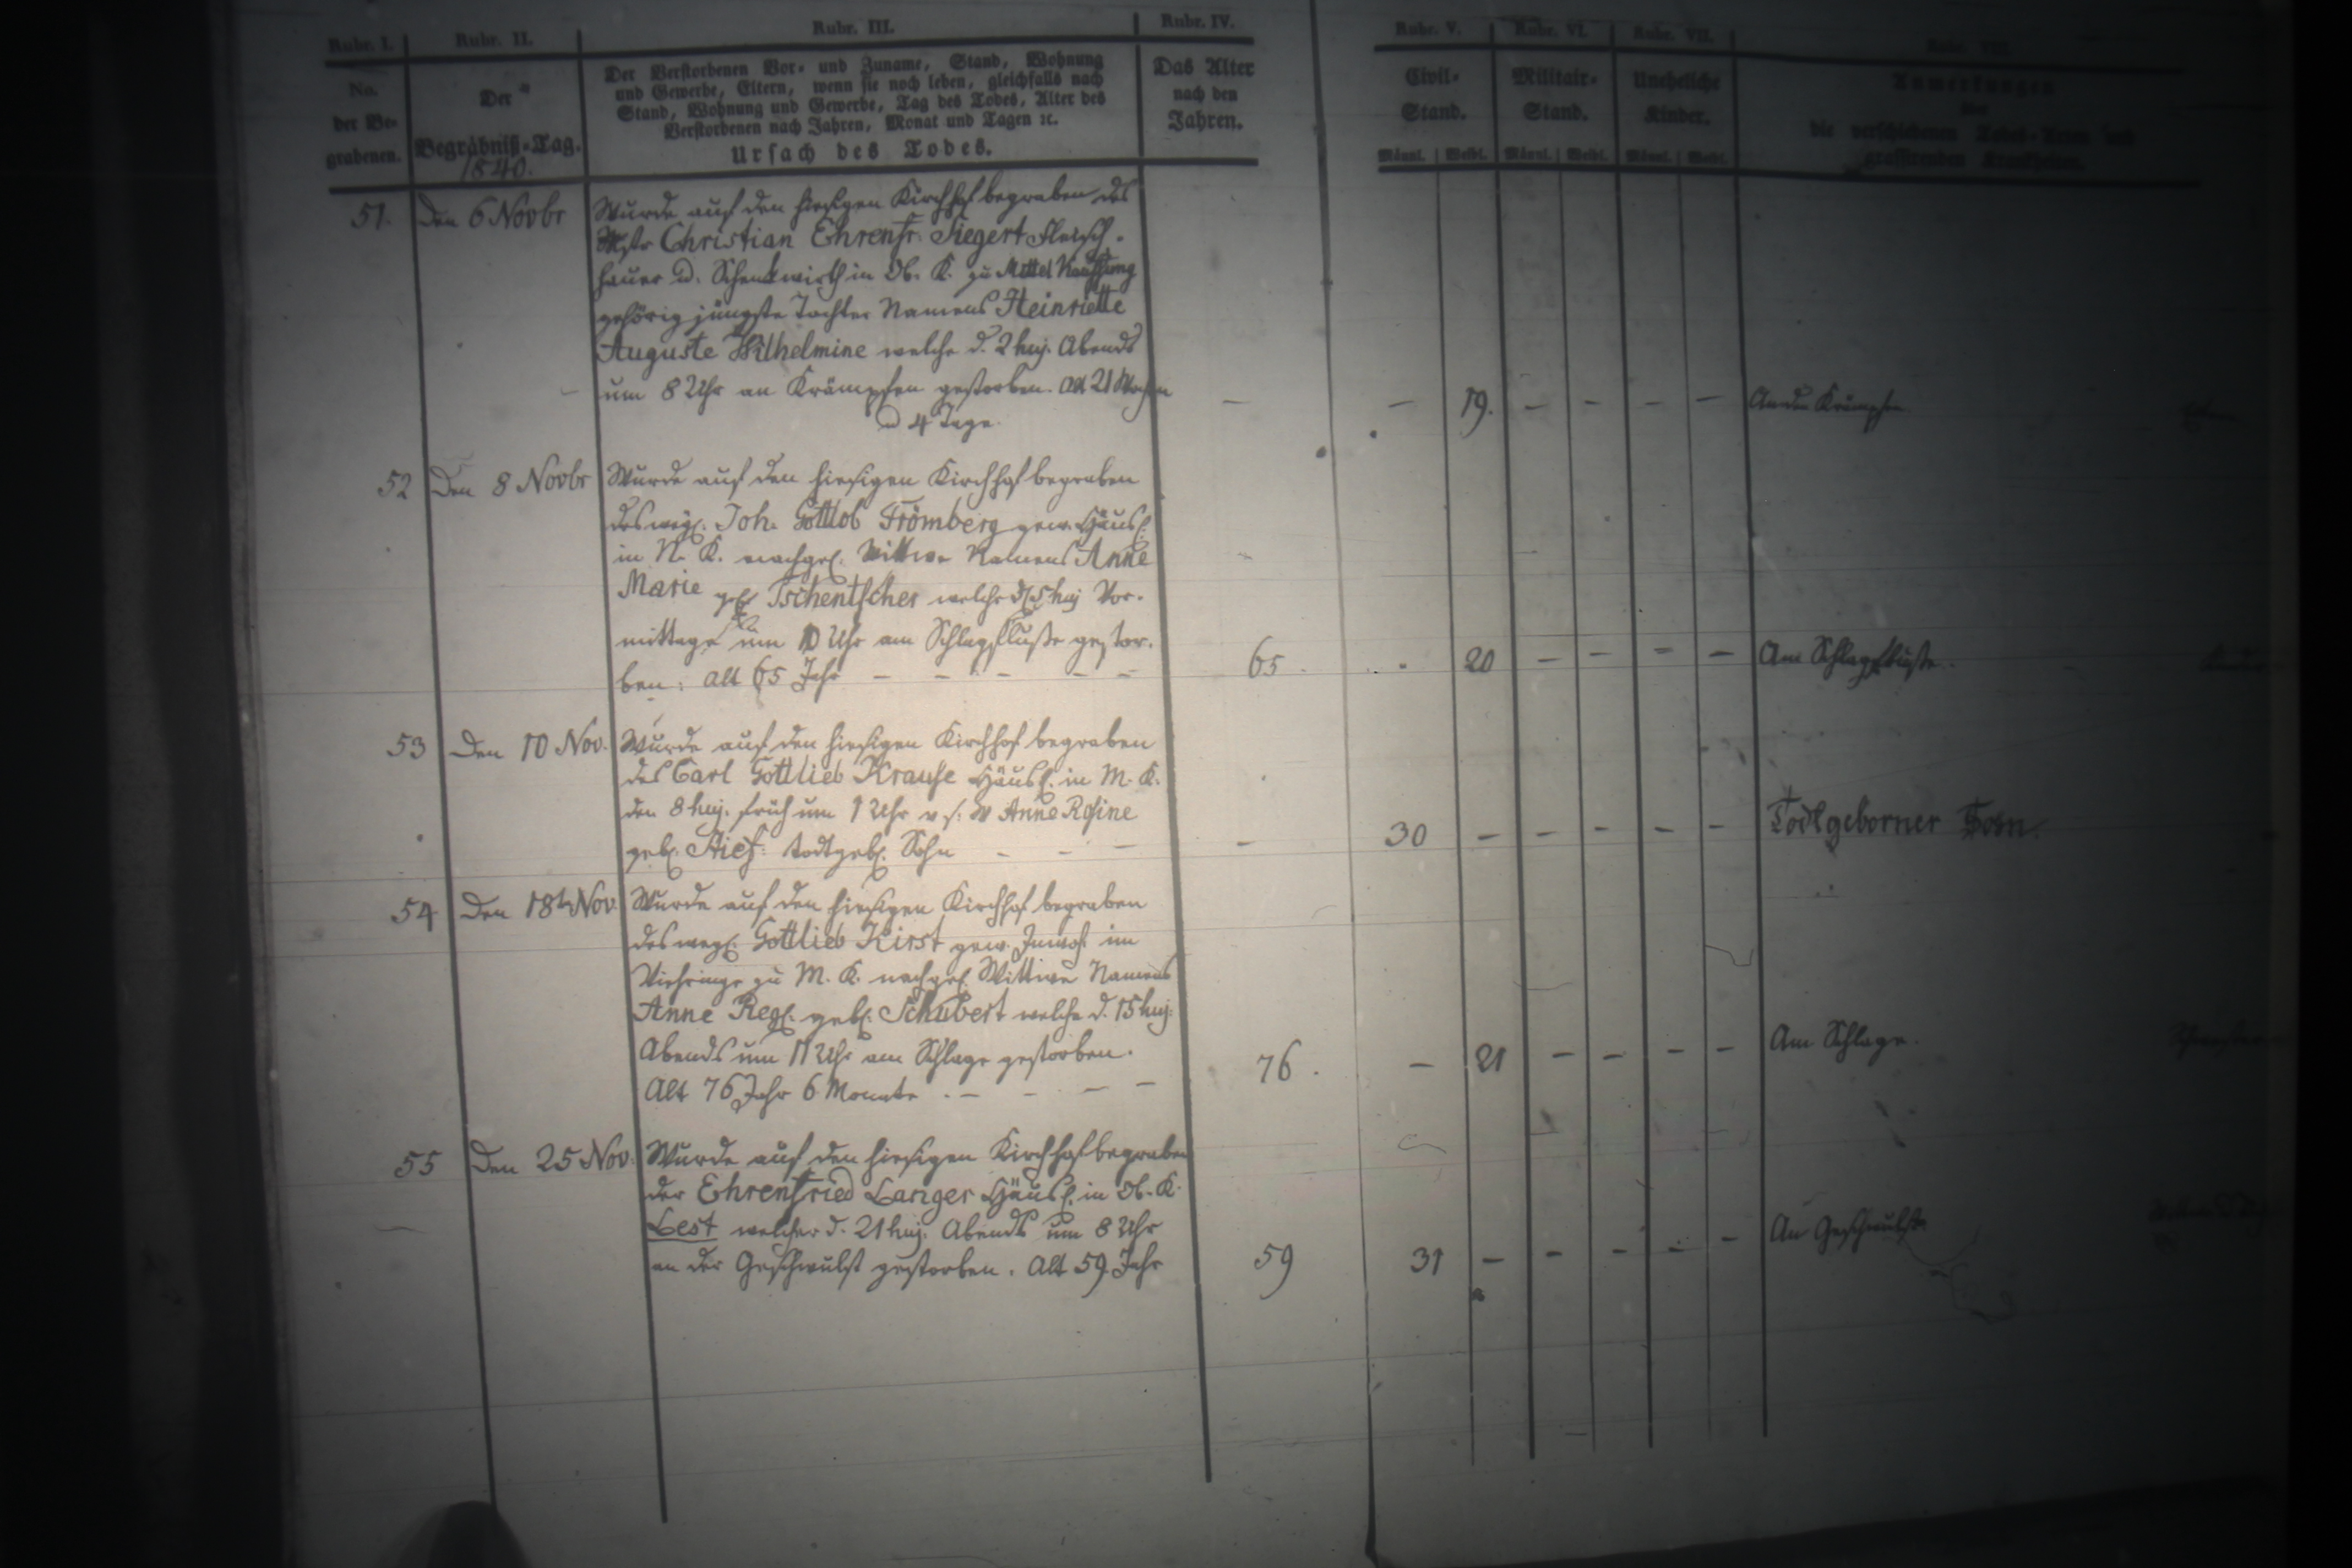 Rubr. I. Rubr. II. Rubr. III. Rubr. IV. Rubr. V. Rubr. VI. Rubr. VII. Rubr. VIII.
No. der Be- grabenen.
Der Begräbniß-Tag. 1840.
Der Verstorbenen Vor- und Zuname, Stand, Wohnung
und Gewerbe, Eltern, wenn sie noch leben, gleichfalls nach
Stand, Wohnung und Gewerbe, Tag des Todes, Alter des
Verstorbenen nach Jahren, Monat und Tagen ꝛc.
Ursach des Todes.
Das Alter
nach den
Jahren.
Civil-
Stand.
Militair-
Stand.
Uneheliche
Kinder.
Männl. Weibl. Männl. Weibl. Männl. Weibl.
Anmerkungen
über
die verschiedenen Todes-Arten und
grassirenden Krankheiten.
51. Den 6 Novbr Wurde auf den hiesigen Kirchhof begraben des
Mstr Christian Ehrenfr. Siegert Fleisch-
hauer u. Schenkwirth in Ob. K. zu Mittel Kauffung
gehörig jüngste Tochter Namens Heinriette
Auguste Wilhelmine welche d. 2 huj. Abends
um 8 Uhr an Krämpfen gestorben. Alt 21 Wochen
u 4 Tage.
— — 19. — — — — An den Krämpfen
52 Den 8 Novbr Wurde auf den hiesigen Kirchhof begraben
des weyl. Joh. Gottlob Frömberg gew. Häusl.
in N. K. nachgel. Wittwe Namens Anne
Marie geb. Tschentscher welche d. 5 huj Vor-
mittags um 10 Uhr am Schlagflusse gestor-
ben. Alt 65 Jahr — — — — —
65 20 — — — — Am Schlagflusse.
53 Den 10 Nov. Wurde auf den hiesigen Kirchhof begraben
des Carl Gottlieb Krause Häusl. in M. K.
den 8 huj. früh um 1 Uhr v. s. W Anne Rosine
geb. todtgeb. Sohn — — —
— 30 — — — — — Todtgeborner Sohn.
54 Den 18t Nov. Wurde auf den hiesigen Kirchhof begraben
des weyl. Gottlieb Hirst gew. Inwoh. im
Viehringe zu M. K. nachgel. Wittwe Namens
Anne Regl. geb. Schubert welche d. 15 huj.
Abends um 11 Uhr am Schlage gestorben.
Alt 76 Jahr 6 Monate. — — — —
76. — 21 — — — — Am Schlage.
55 Den 25 Nov. Wurde auf den hiesigen Kirchhof begraben
der Ehrenfried Langer Häusl. in Ob. K.
Lest welcher d. 21 huj. Abends um 8 Uhr
an der Geschwulst gestorben. Alt 59 Jahr
59 31 — — — — — An Geschwulst